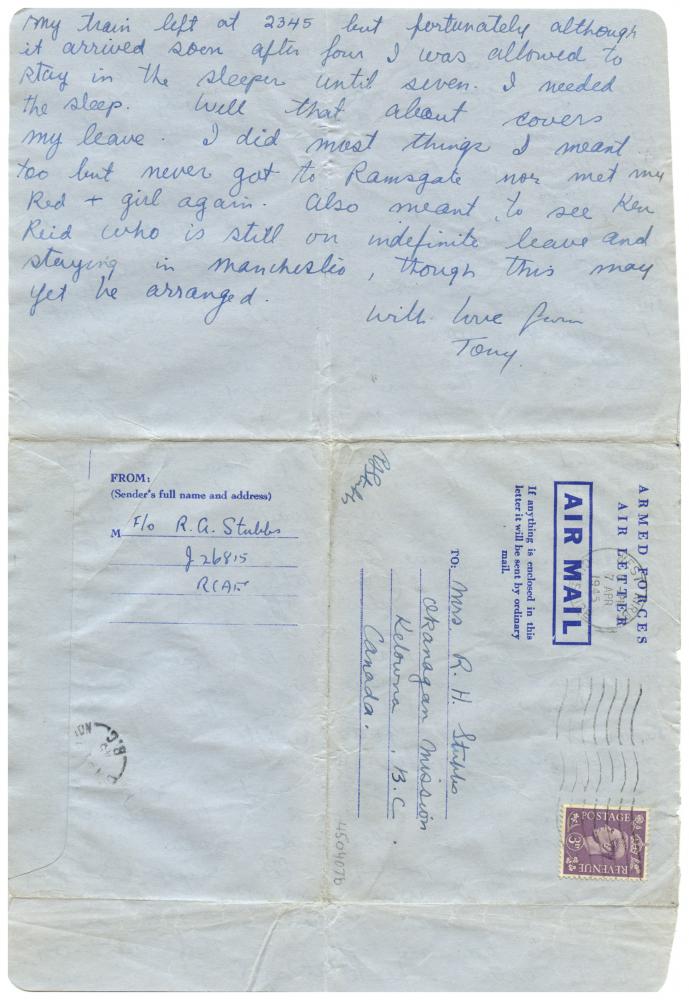 My train left at 2345 but fortunately although
it arrived soon after four I was allowed to
stay in the sleeper until seven. I needed
the sleep. Well that about covers
my leave. I did most things I meant
too but never got to Ramsgate nor met my
Red + girl again. Also meant to see Ken
Reid who is still on indefinite leave and
staying in Manchester, though this may
yet be arranged.
With love from
Tony.
FROM:
(Sender's full name and address)
M F/O R.A. Stubbs
J26815
RCAF
ARMED FORCES
AIR LETTER
AIR MAIL
If anything is enclosed in this
letter it will be sent by ordinary
mail.
TO: Mrs R. H. Stubbs
Okanagan Mission
Kelowna, B.C.
Canada.
RAStubbs
7 APR
1945
POSTAGE
3D
REVENUE
B.C.
450407b